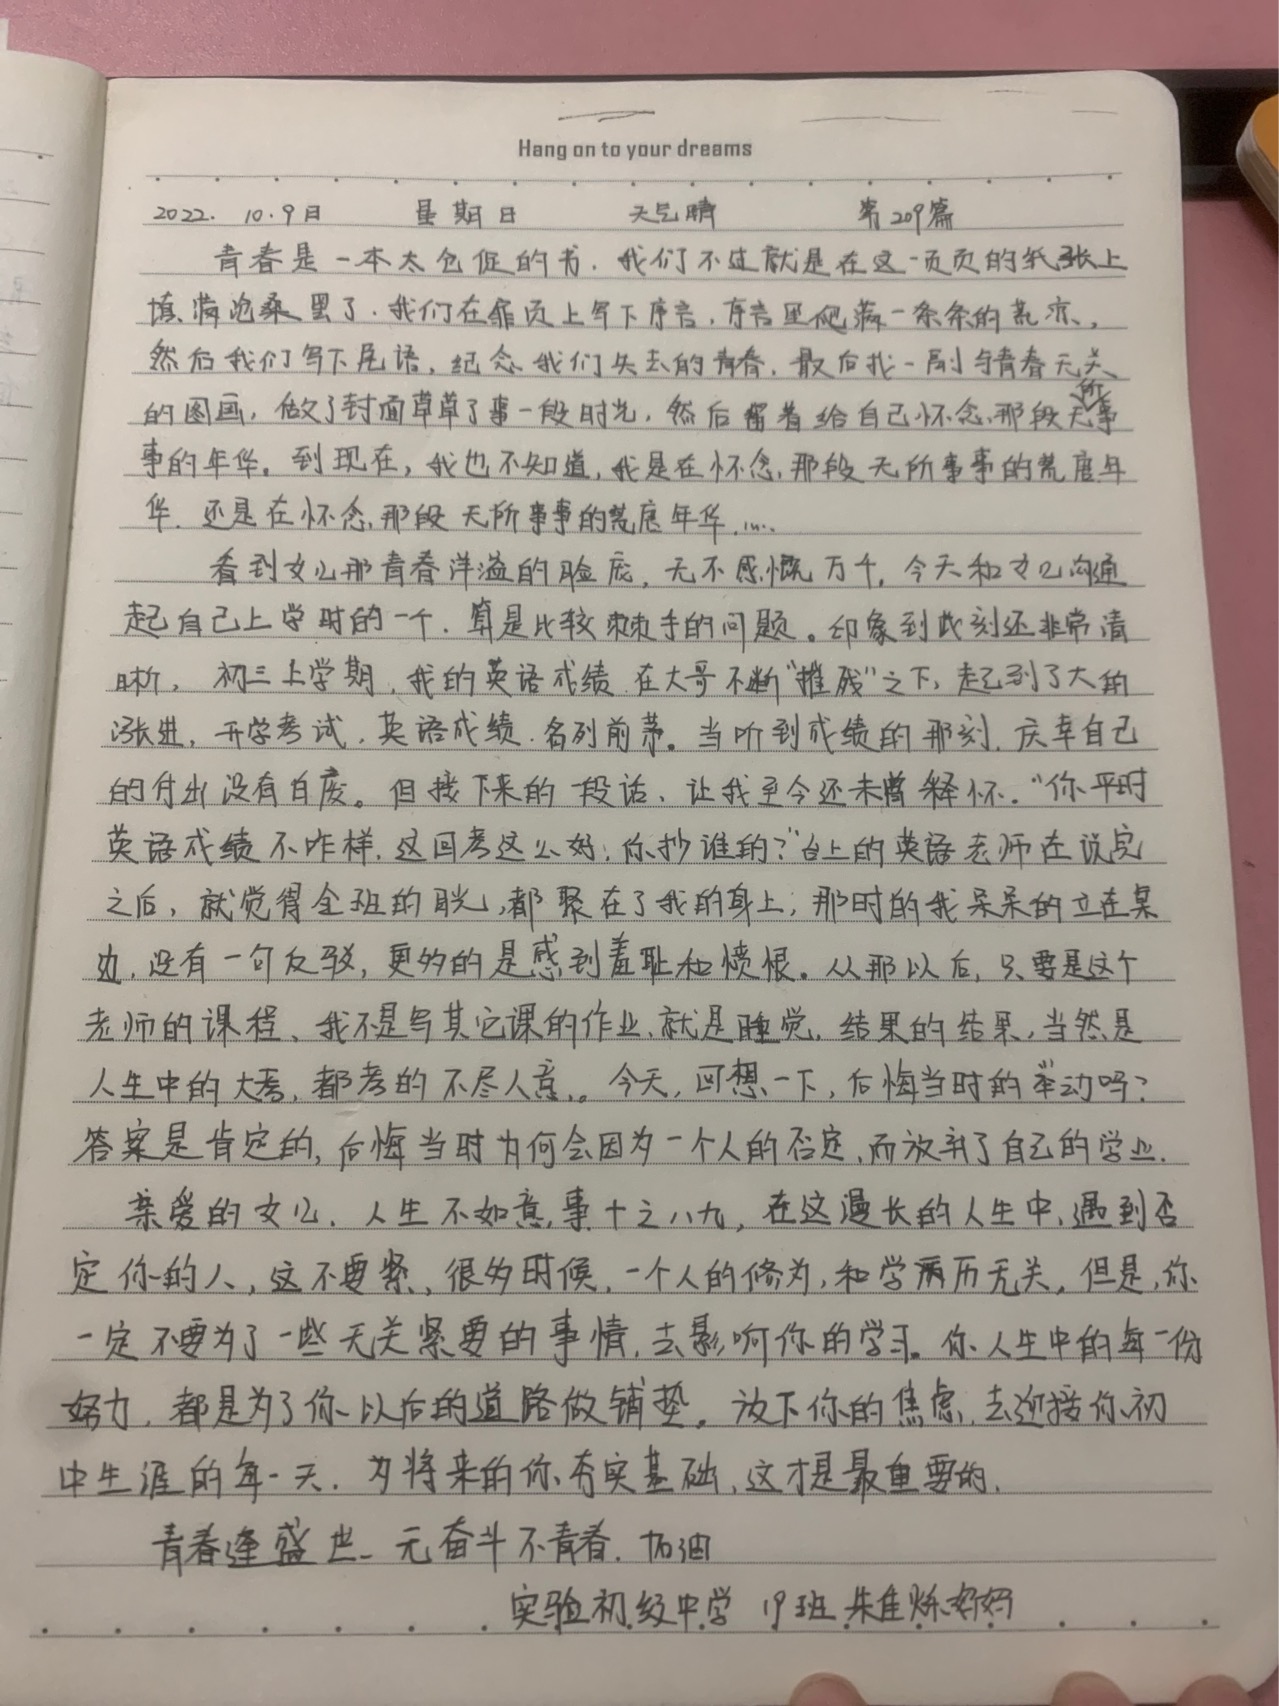 Hang on to your dreams
2022. 10.9日 星期日 天气晴 第209篇
青春是一本太仓促的书，我们不过就是在这一页页的纸张上
填满沧桑罢了．我们在扉页上写下序言，序言里爬满一条条的荒凉，
然后我们写下尾语，纪念我们失去的青春，最后找一副与青春无关
的图画，做了封面草草了事一段时光，然后留着给自己怀念那段无所事
事的年华。到现在，我也不知道，我是在怀念那段无所事事的荒度年
华．还是在怀念那段无所事事的荒度年华……
看到女儿那青春洋溢的脸庞，无不感慨万千，今天和女儿沟通
起自己上学时的一个，算是比较棘手的问题。印象到此刻还非常清
晰，初三上学期，我的英语成绩在大哥不断“摧残”之下，起到了大的
涨进，开学考试，英语成绩名列前茅。当听到成绩的那刻，庆幸自己
的付出没有白废。但接下来的一段话、让我至今还未曾释怀．“你平时
英语成绩不咋样，这回考这么好；你抄谁的？”台上的英语老师在说完
之后，就觉得全班的眼光，都聚在了我的身上；那时的我呆呆的立在桌
边，没有一句反驳，更多的是感到羞耻和愤恨。从那以后，只要是这个
老师的课程、我不是写其它课的作业、就是睡觉，结果的结果，当然是
人生中的大考，都考的不尽人意。今天，回想一下，后悔当时的举动吗？
答案是肯定的，后悔当时为何会因为一个人的否定，而放弃了自己的学业．
亲爱的女儿．人生不如意事十之八九，在这漫长的人生中，遇到否
定你的人，这不要紧，很多时候，一个人的修为，和学历无关，但是，你
一定不要为了一些无关紧要的事情，去影响你的学习。你人生中的每一份
努力，都是为了你以后的道路做铺垫。放下你的焦虑，去迎接你初
中生涯的每一天．为将来的你夯实基础，这才是最重要的．
青春逢盛世、无奋斗不青春．加油
实验初级中学 19班 朱佳烁妈妈